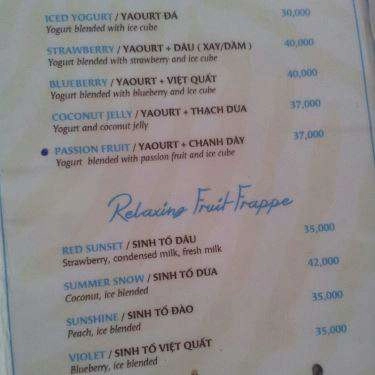 ICED YOGURT / YAOURT ĐÁ 30,000
Yogurt blended with ice cube
STRAWBERRY / YAOURT + DÂU ( XAY/DẦM ) 40,000
Yogurt blended with strawberry and ice cube
BLUEBERRY / YAOURT + VIỆT QUẤT 40,000
Yogurt blended with blueberry and ice cube
COCONUT JELLY / YAOURT + THẠCH DỪA 37,000
Yogurt and coconut jelly
PASSION FRUIT / YAOURT + CHANH DÂY 37,000
Yogurt blended with passion fruit and ice cube
Relaxing Fruit Frappe
RED SUNSET / SINH TỐ DÂU 35,000
Strawberry, condensed milk, fresh milk
SUMMER SNOW / SINH TỐ DỪA 42,000
Coconut, ice blended
SUNSHINE / SINH TỐ ĐÀO 35,000
Peach, ice blended
VIOLET / SINH TỐ VIỆT QUẤT 35,000
Blueberry, ice blended